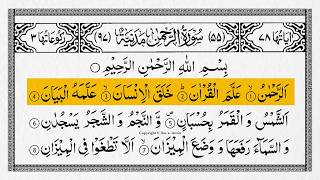 اٰیَاتُهَا ٧٨ (٥٥) سُوْرَةُ الرَّحْمٰنِ مَدَنِیَّةٌ (٩٧) رُكُوْعَاتُهَا ٣
بِسْمِ اللّٰهِ الرَّحْمٰنِ الرَّحِیْمِ
اَلرَّحْمٰنُ ۙ﴿١﴾ عَلَّمَ الْقُرْاٰنَ ؕ﴿٢﴾ خَلَقَ الْاِنْسَانَ ۙ﴿٣﴾ عَلَّمَهُ الْبَیَانَ ﴿٤﴾
اَلشَّمْسُ وَ الْقَمَرُ بِحُسْبَانٍ ﴿٥﴾ وَّ النَّجْمُ وَ الشَّجَرُ یَسْجُدٰنِ ﴿٦﴾
وَ السَّمَآءَ رَفَعَهَا وَ وَضَعَ الْمِیْزَانَ ۙ﴿٧﴾ اَلَّا تَطْغَوْا فِی الْمِیْزَانِ ﴿٨﴾